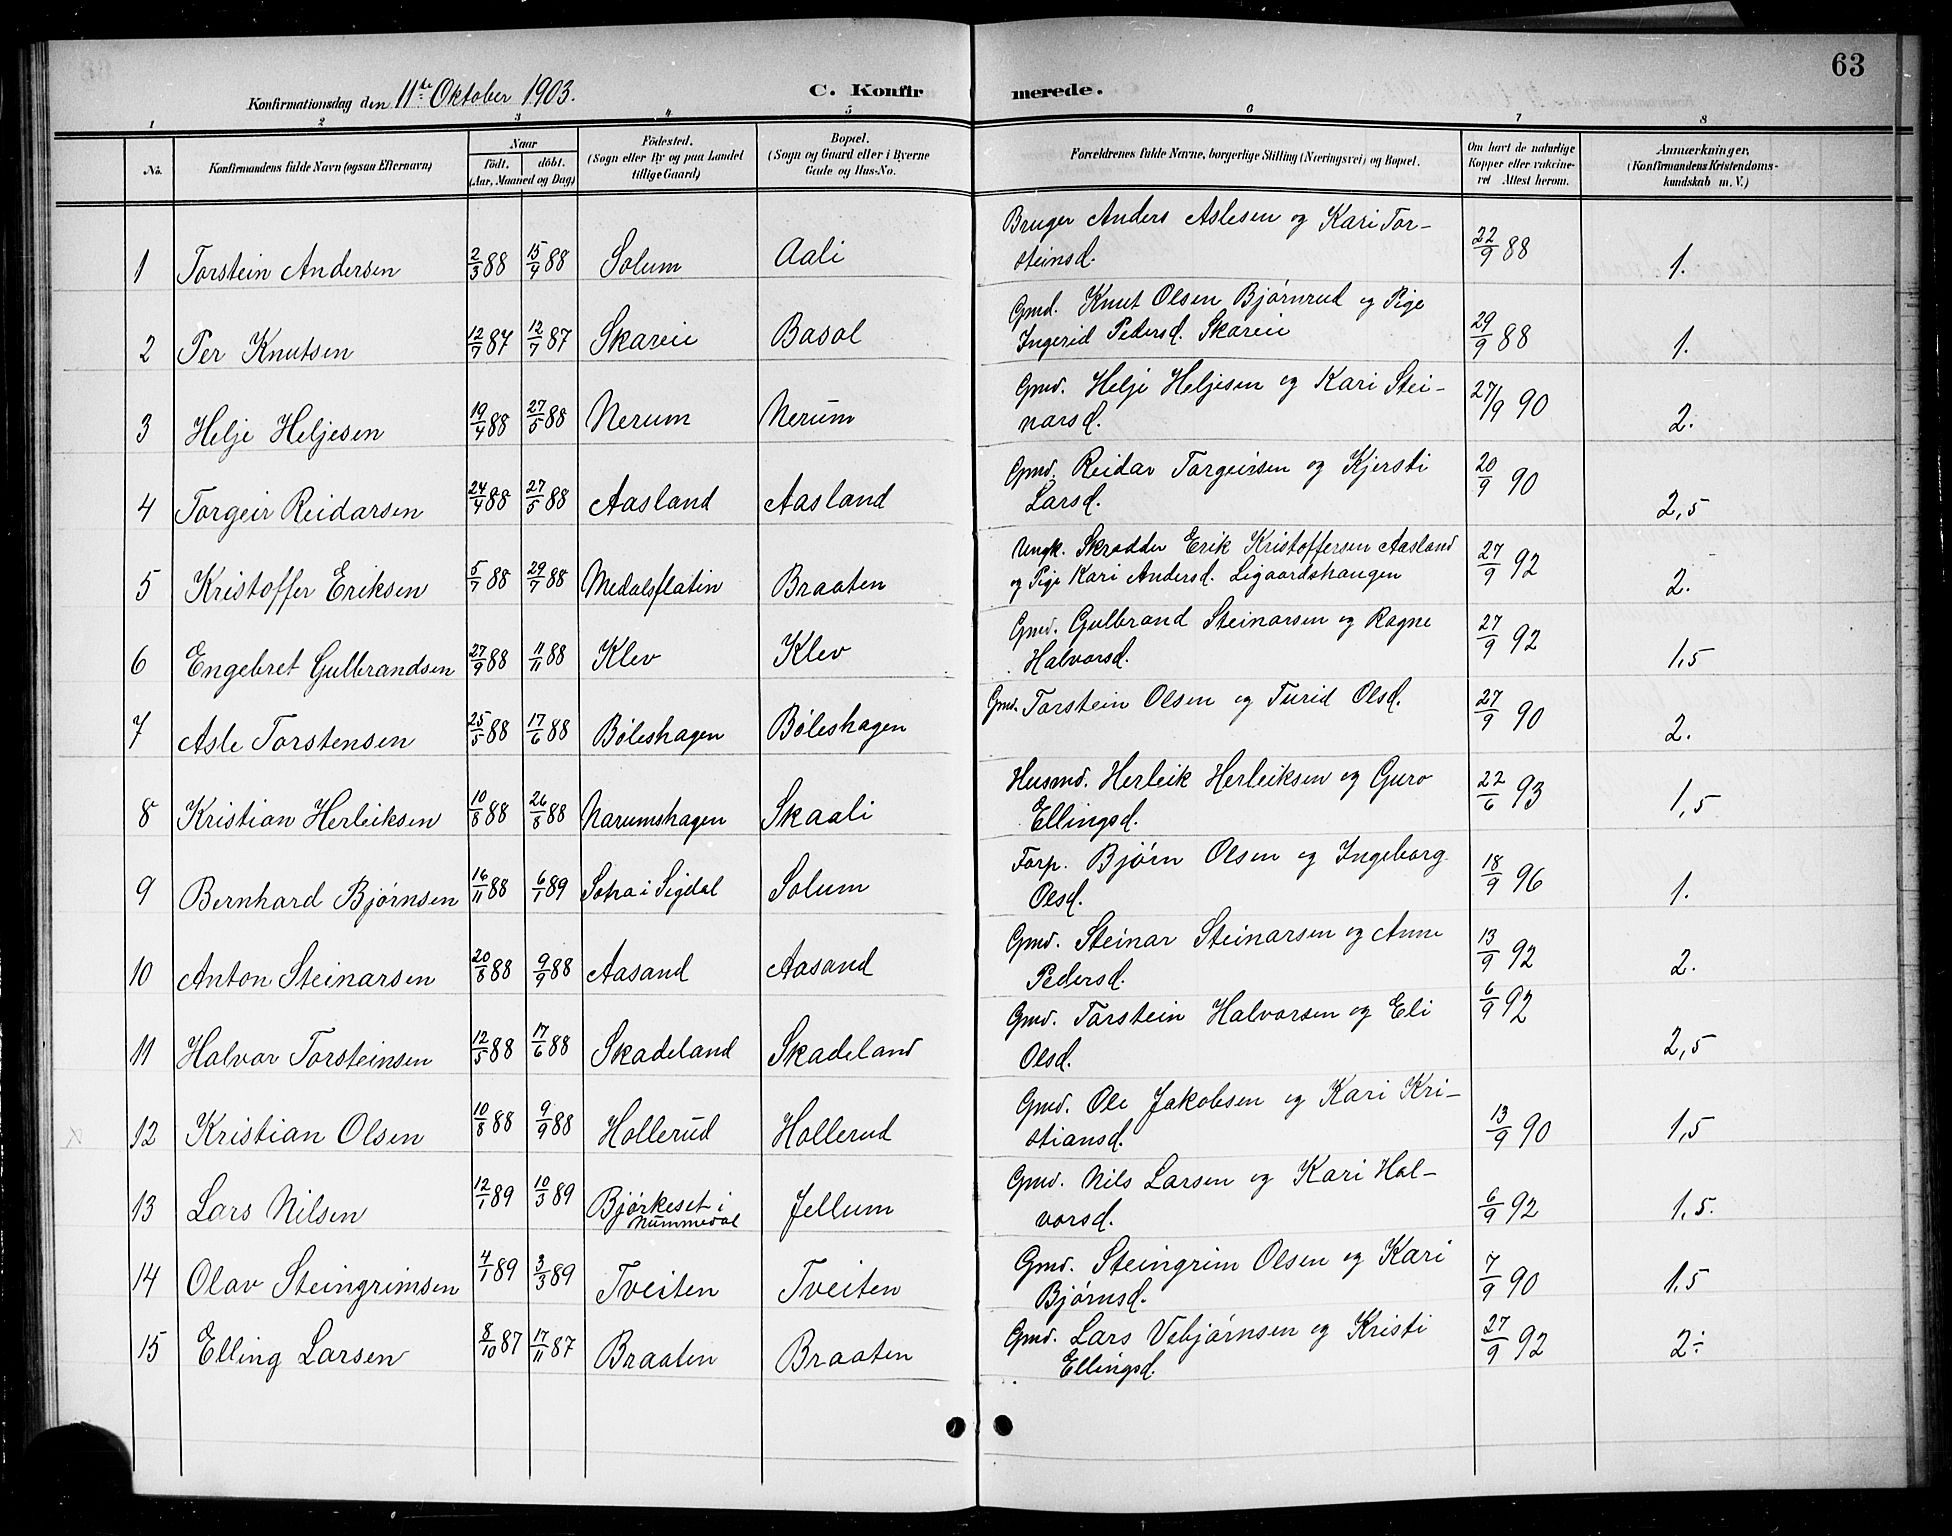 63
Konfirmationsdag den 11te Oktober 1903. C. Konfirmerede.
1 2 3 4 5 6 7 8
No. Konfirmandens fulde Navn (ogsaa Efternavn) Naar födt. döbt. (Aar, Maaned og Dag) Födested. (Sogn eller By og paa Landet tillige Gaard) Bopæl. (Sogn og Gaard eller i Byerne Gade og Hus-No. Forældrenes fulde Navne, borgerlige Stilling (Næringsvei) og Bopæl. Om havt de naturlige Kopper eller vakcineret Attest herom. Anmærkninger, (Konfirmandens Kristendomskundskab m. V.)
1 Torstein Andersen 2/3 88 15/4 88 Solum Aali Bruger Anders Aslesen og Kari Tor-
steinsd. 22/9 88 1.
2 Per Knutsen 12/7 87 12/7 87 Skareie Basol Gmd. Knut Olsen Bjørnrud og Pige
Ingerid Pedersd. Skareie 29/9 88 1.
3 Helje Heljesen 19/4 88 27/5 88 Nerum Nerum Gmd. Helje Heljesen og Kari Stei-
narsd. 27/9 90 2.
4 Torgeir Reidarsen 24/4 88 27/5 88 Aasland Aasland Gmd. Reidar Torgeirsen og Kjersti
Larsd. 20/9 90 2,5
5 Kristoffer Eriksen 5/7 88 29/7 88 Medalsflatin Braaten Ungk. Skrædder Erik Kristoffersen Aasland
og Pige Kari Andersd. Ligaardshaugen 27/9 92 2.
6 Engebret Gulbrandsen 27/9 88 11/11 88 Klev Klev Gmd. Gulbrand Steinarsen og Ragne
Halvorsd. 27/9 92 1,5
7 Asle Torstensen 25/5 88 17/6 88 Bøleshagen Bøleshagen Gmd. Torstein Olsen og Turid Olsd. 27/9 90 2.
8 Kristian Herleiksen 10/8 88 26/8 88 Narumshagen Skaali Husmd. Herleik Herleiksen og Guro
Ellingsd. 22/6 93 1,5
9 Bernhard Bjørnsen 16/11 88 6/1 89 Sotra i Sigdal Solum Forp. Bjørn Olsen og Ingeborg
Olsd. 18/9 96 1.
10 Anton Steinarsen 20/8 88 9/9 88 Aasand Aasand Gmd. Steinar Steinarsen og Anne
Pedersd. 13/9 92 2.
11 Halvor Torsteinsen 12/5 88 17/6 88 Skadeland Skadeland Gmd. Torstein Halvorsen og Eli
Olsd. 6/9 92 2,5
12 Kristian Olsen 10/8 88 9/9 88 Hollerud Hollerud Gmd. Ole Jakobsen og Kari Kri-
stiansd. 13/9 90 1,5
13 Lars Nilsen 12/1 89 10/3 89 Bjørkeset i Nummedal Jellum Gmd. Nils Larsen og Kari Hal-
vorsd. 6/9 92 1,5.
14 Olav Steingrimsen 4/1 89 3/3 89 Tveiten Tveiten Gmd. Steingrim Olsen og Kari
Bjørnsd. 7/9 90 1,5
15 Elling Larsen 8/10 87 17/11 87 Braaten Braaten Gmd. Lars Vebjørnsen og Kristi
Ellingsd. 27/9 92 2÷